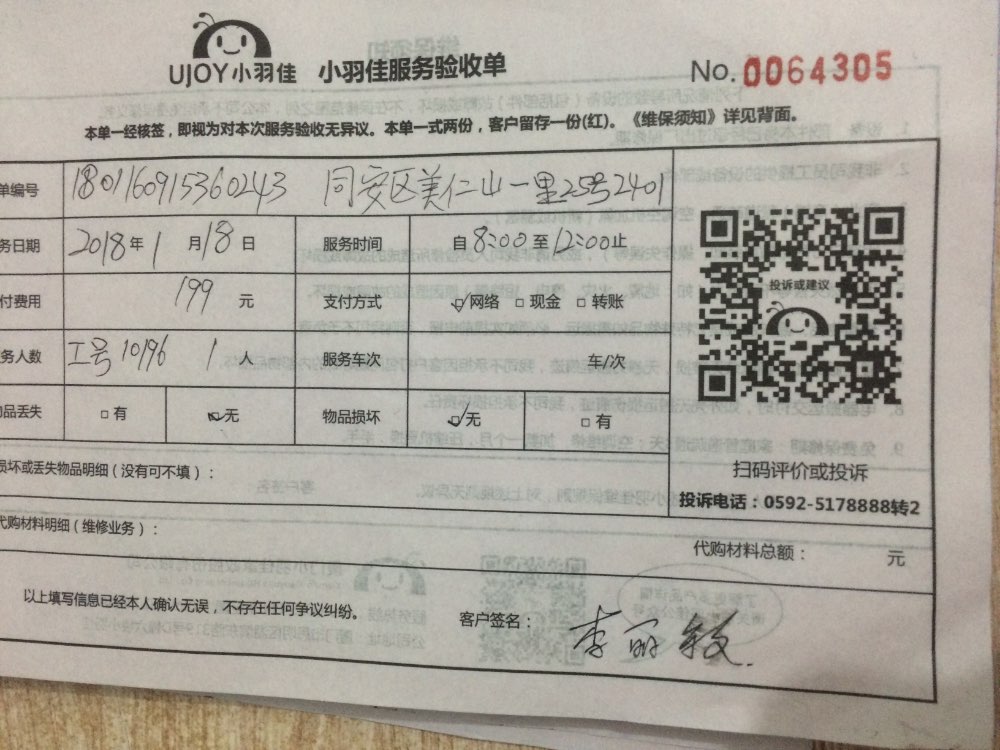 UJOY小羽佳 小羽佳服务验收单 No. 0064305
本单一经核签，即视为对本次服务验收无异议。本单一式两份，客户留存一份(红)。《维保须知》详见背面。
单编号 1801160915360243 同安区美仁山一里25号2401
务日期 2018年1月18日 服务时间 自8:00至12:00止
付费用 199元 支付方式 ☑网络 □现金 □转账
务人数 工号10196 1人 服务车次 车/次
品丢失 □有 ☑无 物品损坏 ☑无 □有
投诉或建议
扫码评价或投诉
投诉电话：0592-5178888转2
损坏或丢失物品明细（没有可不填）：
代购材料明细（维修业务）：
代购材料总额： 元
以上填写信息已经本人确认无误，不存在任何争议纠纷。
客户签名：李丽